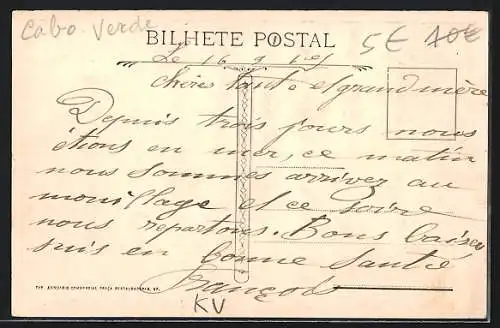 Cabo Verde
5€ 10€
BILHETE POSTAL
Le 16 9
Chère tante et grand mère
Depuis trois jours nous
étions en mer, ce matin
nous sommes arrivez au
mouillage et ce soire
nous repartons. Bons baisers
suis en bonne santé
François
KV